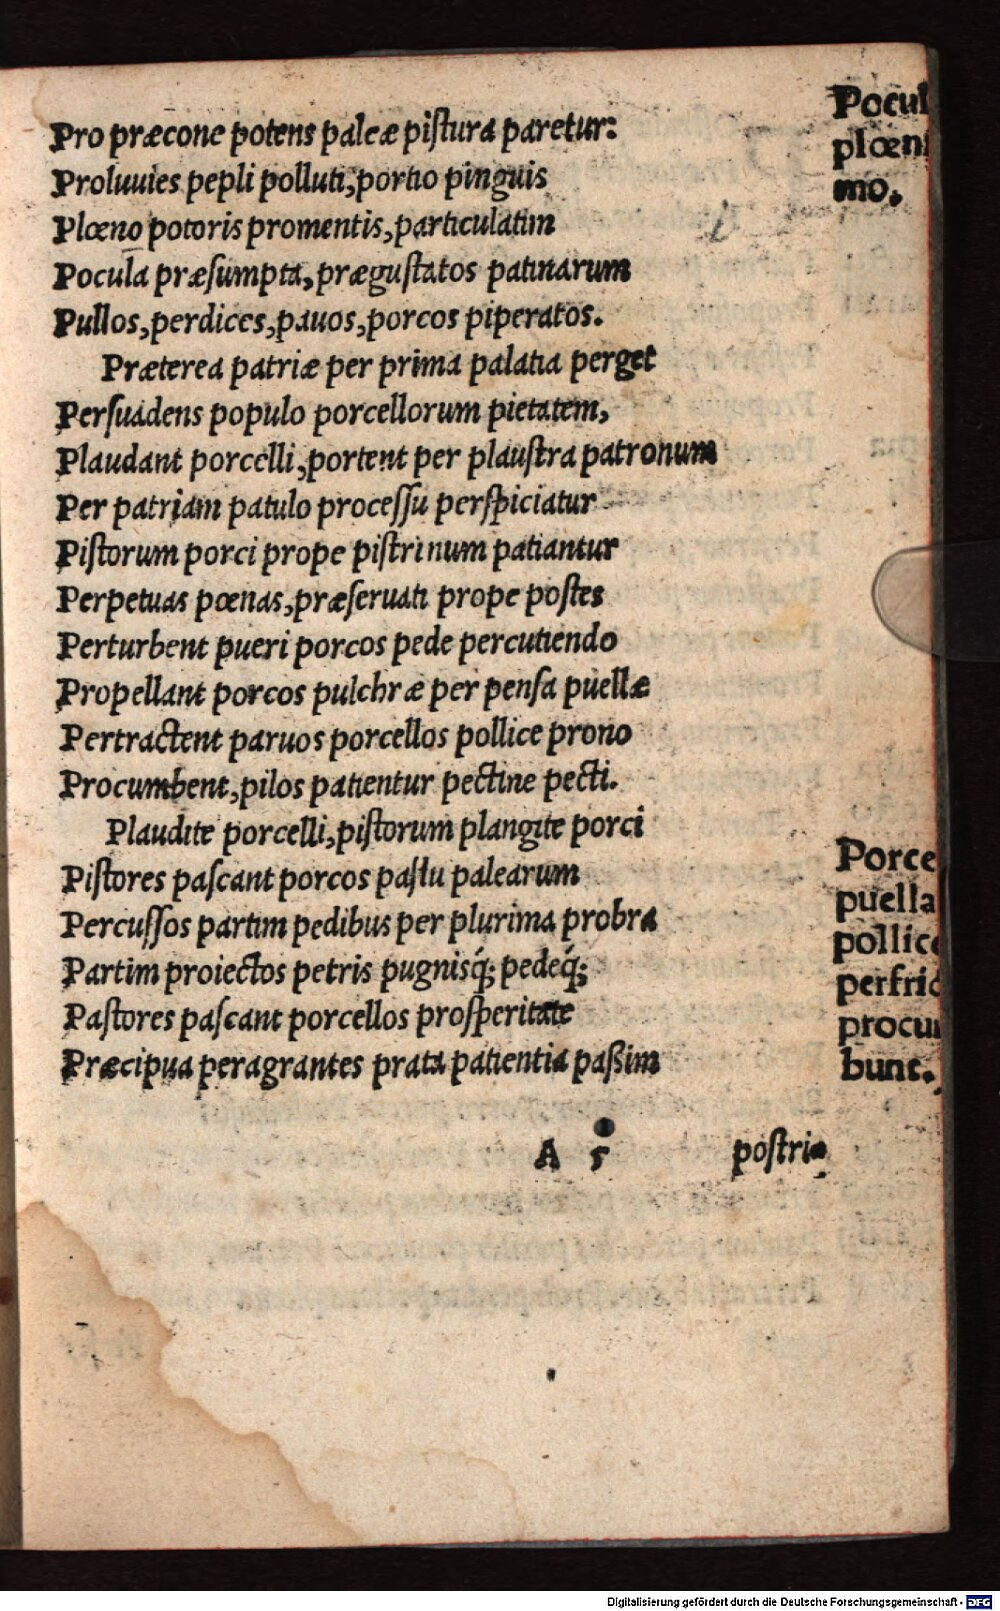 Pro præcone potens paleæ piſtura paretur:
Proluuies pepli polluti, portio pinguis
Plœno potoris promentis, particulatim
Pocula præſumpta, præguſtatos patinarum
Pullos, perdices, pauos, porcos piperatos.
Præterea patriæ per prima palatia perget
Perſuadens populo porcellorum pietatem,
Plaudant porcelli, portent per plauſtra patronum
Per patriam patulo proceſſu perſpiciatur
Piſtorum porci prope piſtrinum patiantur
Perpetuas pœnas, præſeruati prope poſtes
Perturbent pueri porcos pede percutiendo
Propellant porcos pulchræ per penſa puellæ
Pertractent paruos porcellos pollice prono
Procumbent, pilos patientur pectine pecti.
Plaudite porcelli, piſtorum plangite porci
Piſtores paſcant porcos paſtu palearum
Percuſſos partim pedibus per plurima probra
Partim proiectos petris pugnisq́; pedeq́;
Paſtores paſcant porcellos proſperitate
Præcipua peragrantes prata patientia paßim
A 5 poſtria
Pocul
plœn
mo.
Porce
puella
pollic
perfric
procu
bunt.
Digitalisierung gefördert durch die Deutsche Forschungsgemeinschaft - DFG